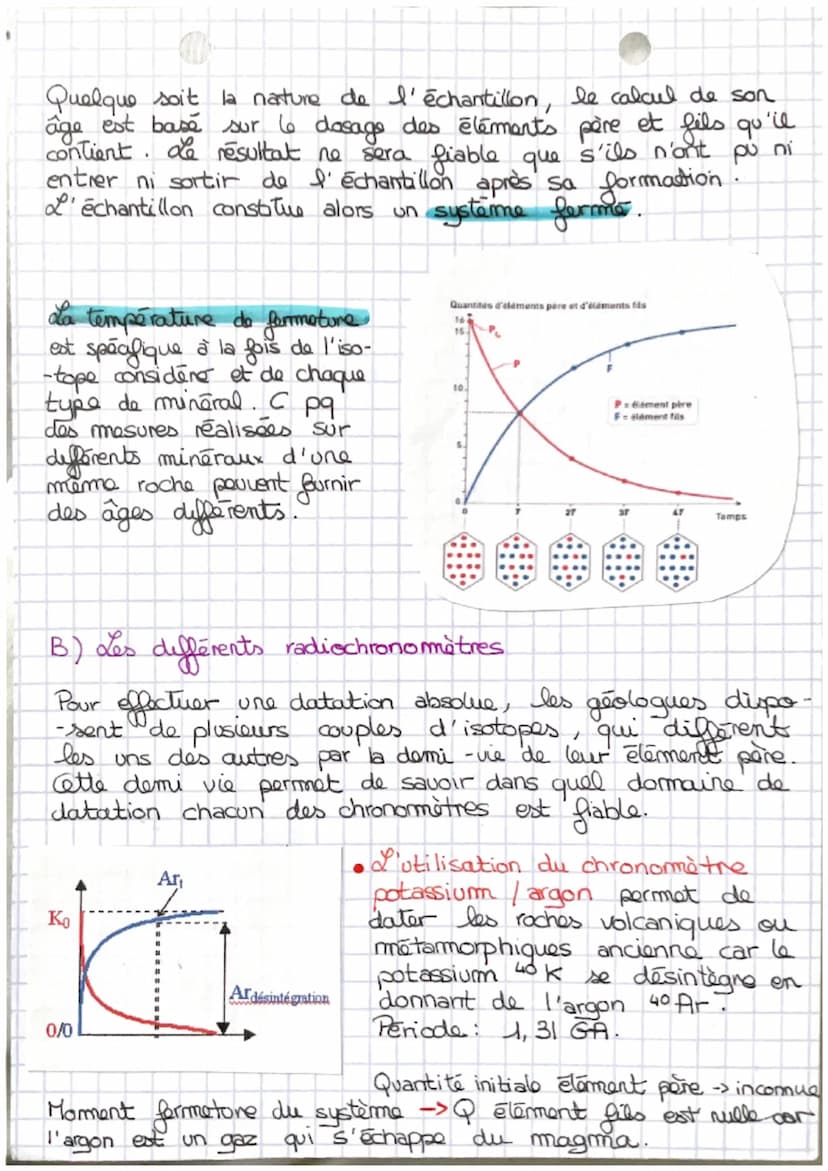 Quelque soit la nature de l'échantillon, le calcul de son
âge est basé sur le dosage des éléments père et fils qu'il
contient. Le résultat ne sera fiable que s'ils n'ont pu ni
entrer ni sortir de l'échantillon après sa formation.
L'échantillon constitue alors un système fermé.
La température de fermeture
est spécifique à la fois de l'iso-
-tope considéré et de chaque
type de minéral. C pq
des mesures réalisées sur
différents minéraux d'une
même roche peuvent fournir
des âges différents.
Quantités d'éléments père et d'éléments fils
16
15
P₀
P
F
10
P = élément père
F = élément fils
5
0
0 T 2T 3T 4T Temps
B) Les différents radiochronomètres
Pour effectuer une datation absolue, les géologues dispo-
-sent de plusieurs couples d'isotopes, qui diffèrent
les uns des autres par la demi-vie de leur élément père.
Cette demi vie permet de savoir dans quel domaine de
datation chacun des chronomètres est fiable.
Ar₁
K₀
Ar désintégration
0/0
• L'utilisation du chronomètre
potassium / argon permet de
dater les roches volcaniques ou
métamorphiques ancienne car le
potassium ⁴⁰K se désintègre en
donnant de l'argon ⁴⁰Ar.
Période : 1,31 GA.
Quantité initiale élément père -> inconnue
Moment fermeture du système -> Q élément fils est nulle car
l'argon est un gaz qui s'échappe du magma.